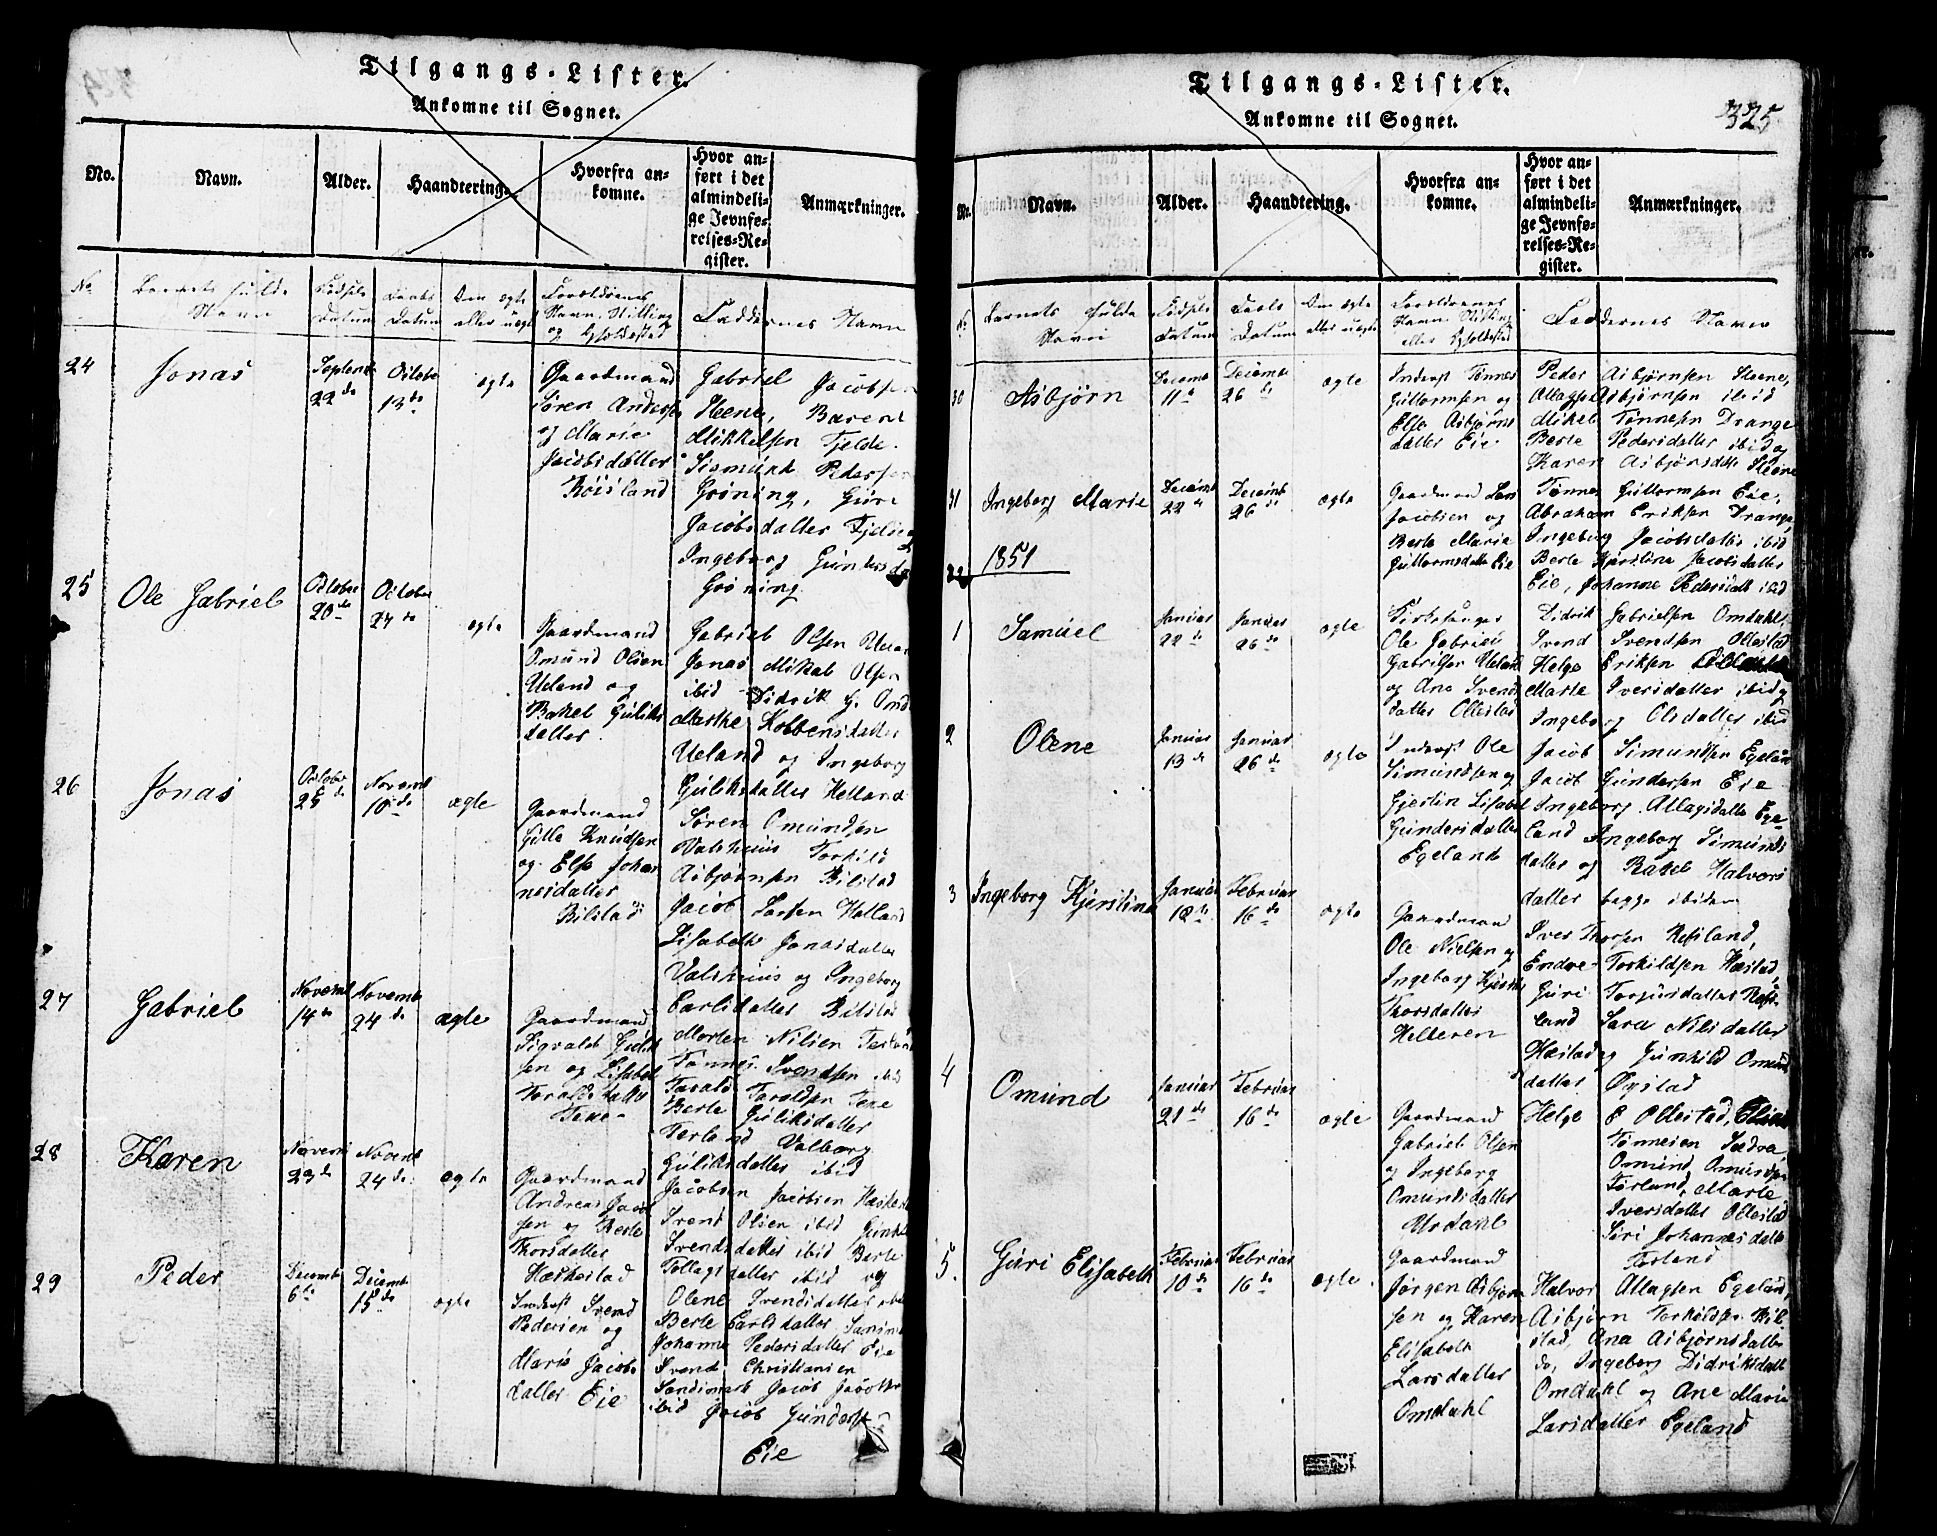 Tilgangs-Lister.
Ankomne til Sognet.
No.
Navn.
Alder.
Haandtering.
Hvorfra an-
komne.
Hvor an-
ført i det
almindeli-
ge Jevnfø-
relses-Re-
gister.
Anmærkninger.
No
Barnets fulde
Navn
Fødsels
Datum
Daabs
Datum
Om ægte
eller uægte
Forældrenes
Navn, Stilling
og Opholdssted
Faddernes Navn
24
Jonas
Septemb
22de
Octobe
13de
ægte
Gaardmand
Sören Anders
og Marie
Jacobsdatter
Röisland
Gabriel Jacobsen
Steene, Barent
Mikkelsen Fjelde
Sigmund Pedersen
Gröning, Guri
Jacobsdatter Fjelde
Ingeborg Gunders
Gröning
25
Ole Gabriel
October
20de
October
27de
ægte
Gaardmand
Omund Olsen
Ueland og
Rakel Guliks
datter
Gabriel Olsen Uela
Jonas Mikal Olsen
ibid Didrik G. Omd
Marthe Kobbensdatter
Ueland og Ingeborg
Guliksdatter Helland
26
Jonas
Octobe
25de
Novemb
10de
ægte
Gaardmand
Gitle Knudsen
og Else Johan
nesdatter
Bilstad
Sören Omundsen
Valshuus Torkild
Asbjörnsen Bilstad
Jacob Larsen Helland
Lisabeth Jonasdatter
Valshuus og Ingeborg
Carlsdatter Bilstad
27
Gabriel
Novemb
14de
Novemb
24de
ægte
Gaardmand
Sigvald Gulik
sen og Lisabet
Taraldsdatter
Teee
Morten Nilsen Terland
Tönnes Svendsen ibid
Tarald Taraldsen Teee
Berte Guliksdatter
Terland Valborg
Guliksdatter ibid
28
Karen
Novem
23de
Novemb
24de
ægte
Gaardmand
Andreas Jacob
sen og Berte
Thorsdatter
Hæskestad
Jacobsen Jacobsen Hæskest
Svend Olsen ibid Gunhil
Svendsdatter ibid Berte
Tollagsdatter ibid og
Olene Svendsdatter ibid
29
Peder
Decemb
6te
Decemb
15de
ægte
Inderst Svend
Pedersen og
Marie Jacobs
datter Eie
Berte Carlsdatter
Johanne Pedersdatter Eie
Svend Christiansen
Sandsmark Jacob Jacobs
ibid Jacob Gunders
Eie
Tilgangs-Lister.
Ankomne til Sognet.
325
Nr.
Navn.
Alder.
Haandtering.
Hvorfra an-
komne.
Hvor an-
ført i det
almindeli-
ge Jevnfø-
relses-Re-
gister.
Anmærkninger.
No
Barnets fulde
Navn
Fødsels
Datum
Daabs
Datum
Om ægte
eller uægte
Forældrenes
Navn Stilling
eller Opholdssted
Faddernes Navn
30
Asbjörn
Decemb
11te
Decemb
26de
ægte
Inderst Tönnes
Guttormsen og
Else Asbjörns
datter Eie
Peder Asbjörnsen Steene,
Atlag Asbjörnsen ibid
Mikel Tönnesen Drange
Berte Pedersdatter ibid og
Karen Asbjörnsdatt Steene
31
Ingeborg Marie
Decemb
22de
Decemb
26de
ægte
Gaardmand Lars
Jacobsen og
Berte Marie
Guttormsdatter Eie
Tönnes Guttormsen Eie,
Abraham Eriksen Drange
Ingeborg Jacobsdatter ibid
Berte Kjerstine Jacobsdatter
Eie, Johanne Pedersdatt ibid
1851
1
Samuel
Januar
22de
Januar
26de
ægte
Kirkesanger
Ole Gabriel
Gabrielsen Ueland
og Ane Svends
datter Ollestad
Didrik Gabrielsen Omdahl,
Svend Svendsen Ollestad
Helge Eriksen Ollestad
Marte Iversdatter ibid og
Ingeborg Olsdatter ibid
2
Olene
Januar
13de
Januar
26de
ægte
Inderst Ole
Simundsen og
Gjertin Lisabet
Gundersdatter
Egeland
Jacob Simundsen Egeland
Jacob Gundersen Eie
Ingeborg Atlagsdatter Ege-
land Ingeborg Simunds
datter og Rakel Halvors
datter begge ibidem
3
Ingeborg Kjerstine
Januar
18de
Februar
16de
ægte
Gaardmand
Ole Nielsen og
Ingeborg Kjerst
Thorsdatter
Helleren
Iver Thorsen Refsland,
Endre Torkildsen Hæstad,
Guri Torjusdatter Refs-
land Sara Nilsdatter
Hæstad og Gunhild Omund
datter Öystad
4
Omund
Januar
21de
Februar
16de
ægte
Gaardmand
Gabriel Olsen
og Ingeborg
Omundsdatter
Urdahl
Helge E Ollestad,
Tönnesen Sædra
Omund Omundsen
Förland, Marte
Iversdatter Ollestad
Siri Johannesdatte
Förland
5.
Guri Elisabeth
Februar
10de
Februar
16de
ægte
Gaardmand
Jörgen Asbjörn
sen og Karen
Elisabeth
Larsdatter
Omdahl
Halvor Atlagsen Egeland,
Asbjörn Torkildsen Bil-
stad, Ana Asbjörnsdatte
do, Ingeborg Didriksdatt
Omdahl og Ane Marie
Larsdatter Egeland